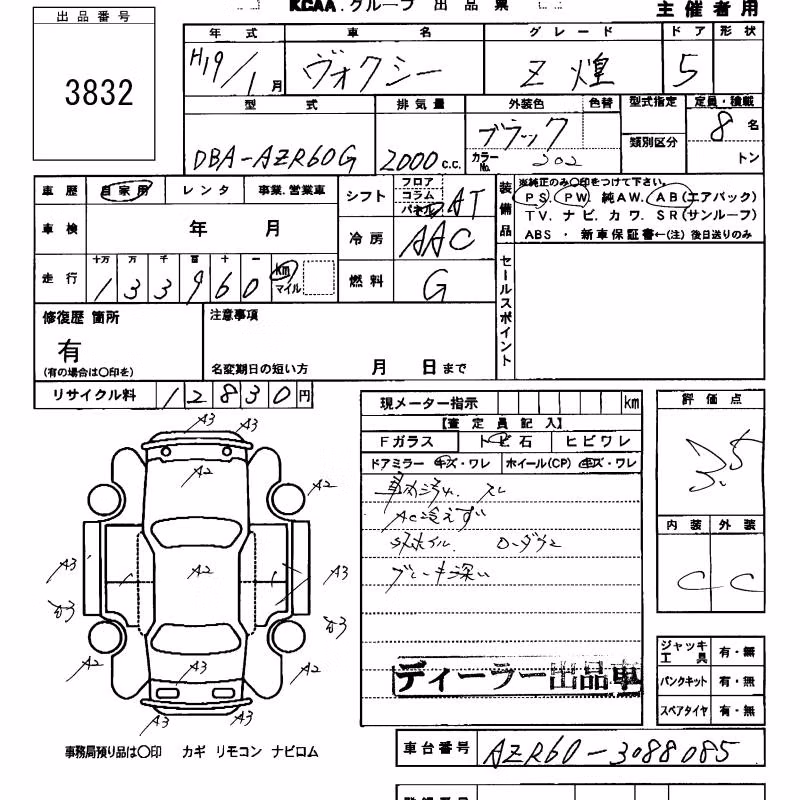 KCAA. グループ 出品票
主催者用
出品番号
3832
年式 車名 グレード ドア 形状
H19/1月 ヴォクシー Z 煌 5
型式 排気量 外装色 色替 型式指定 定員・積載
DBA-AZR60G 2000c.c. ブラック 8名
カラーNo. 202 類別区分 トン
車歴 自家用 レンタ 事業.営業車
車検 年 月
走行 十万 万 千 百 十 一
133960 km マイル
シフト フロア コラム パネル AT
冷房 AAC
燃料 G
装備品
※純正のみ〇印をつけて下さい。
PS. PW. 純AW. AB(エアバック)
TV. ナビ. カワ. SR(サンルーフ)
ABS ・ 新車保証書←(注) 後日送りのみ
セールスポイント
修復歴 箇所
有
(有の場合は〇印を)
注意事項
名変期日の短い方 月 日まで
リサイクル料 12830円
現メーター指示 km
【査定員記入】
Fガラス トビ石 ヒビワレ
ドアミラー キズ・ワレ ホイール(CP) キズ・ワレ
AC冷えず
ディーラー出品車
評価点
3.5
内装 外装
C C
A3 A3
A2
A2
A3 A2 A3
A2 A3 A2
A3 A3
ジャッキ工具 有・無
パンクキット 有・無
スペアタイヤ 有・無
事務局預り品は〇印 カギ リモコン ナビロム
車台番号 AZR60-3088085